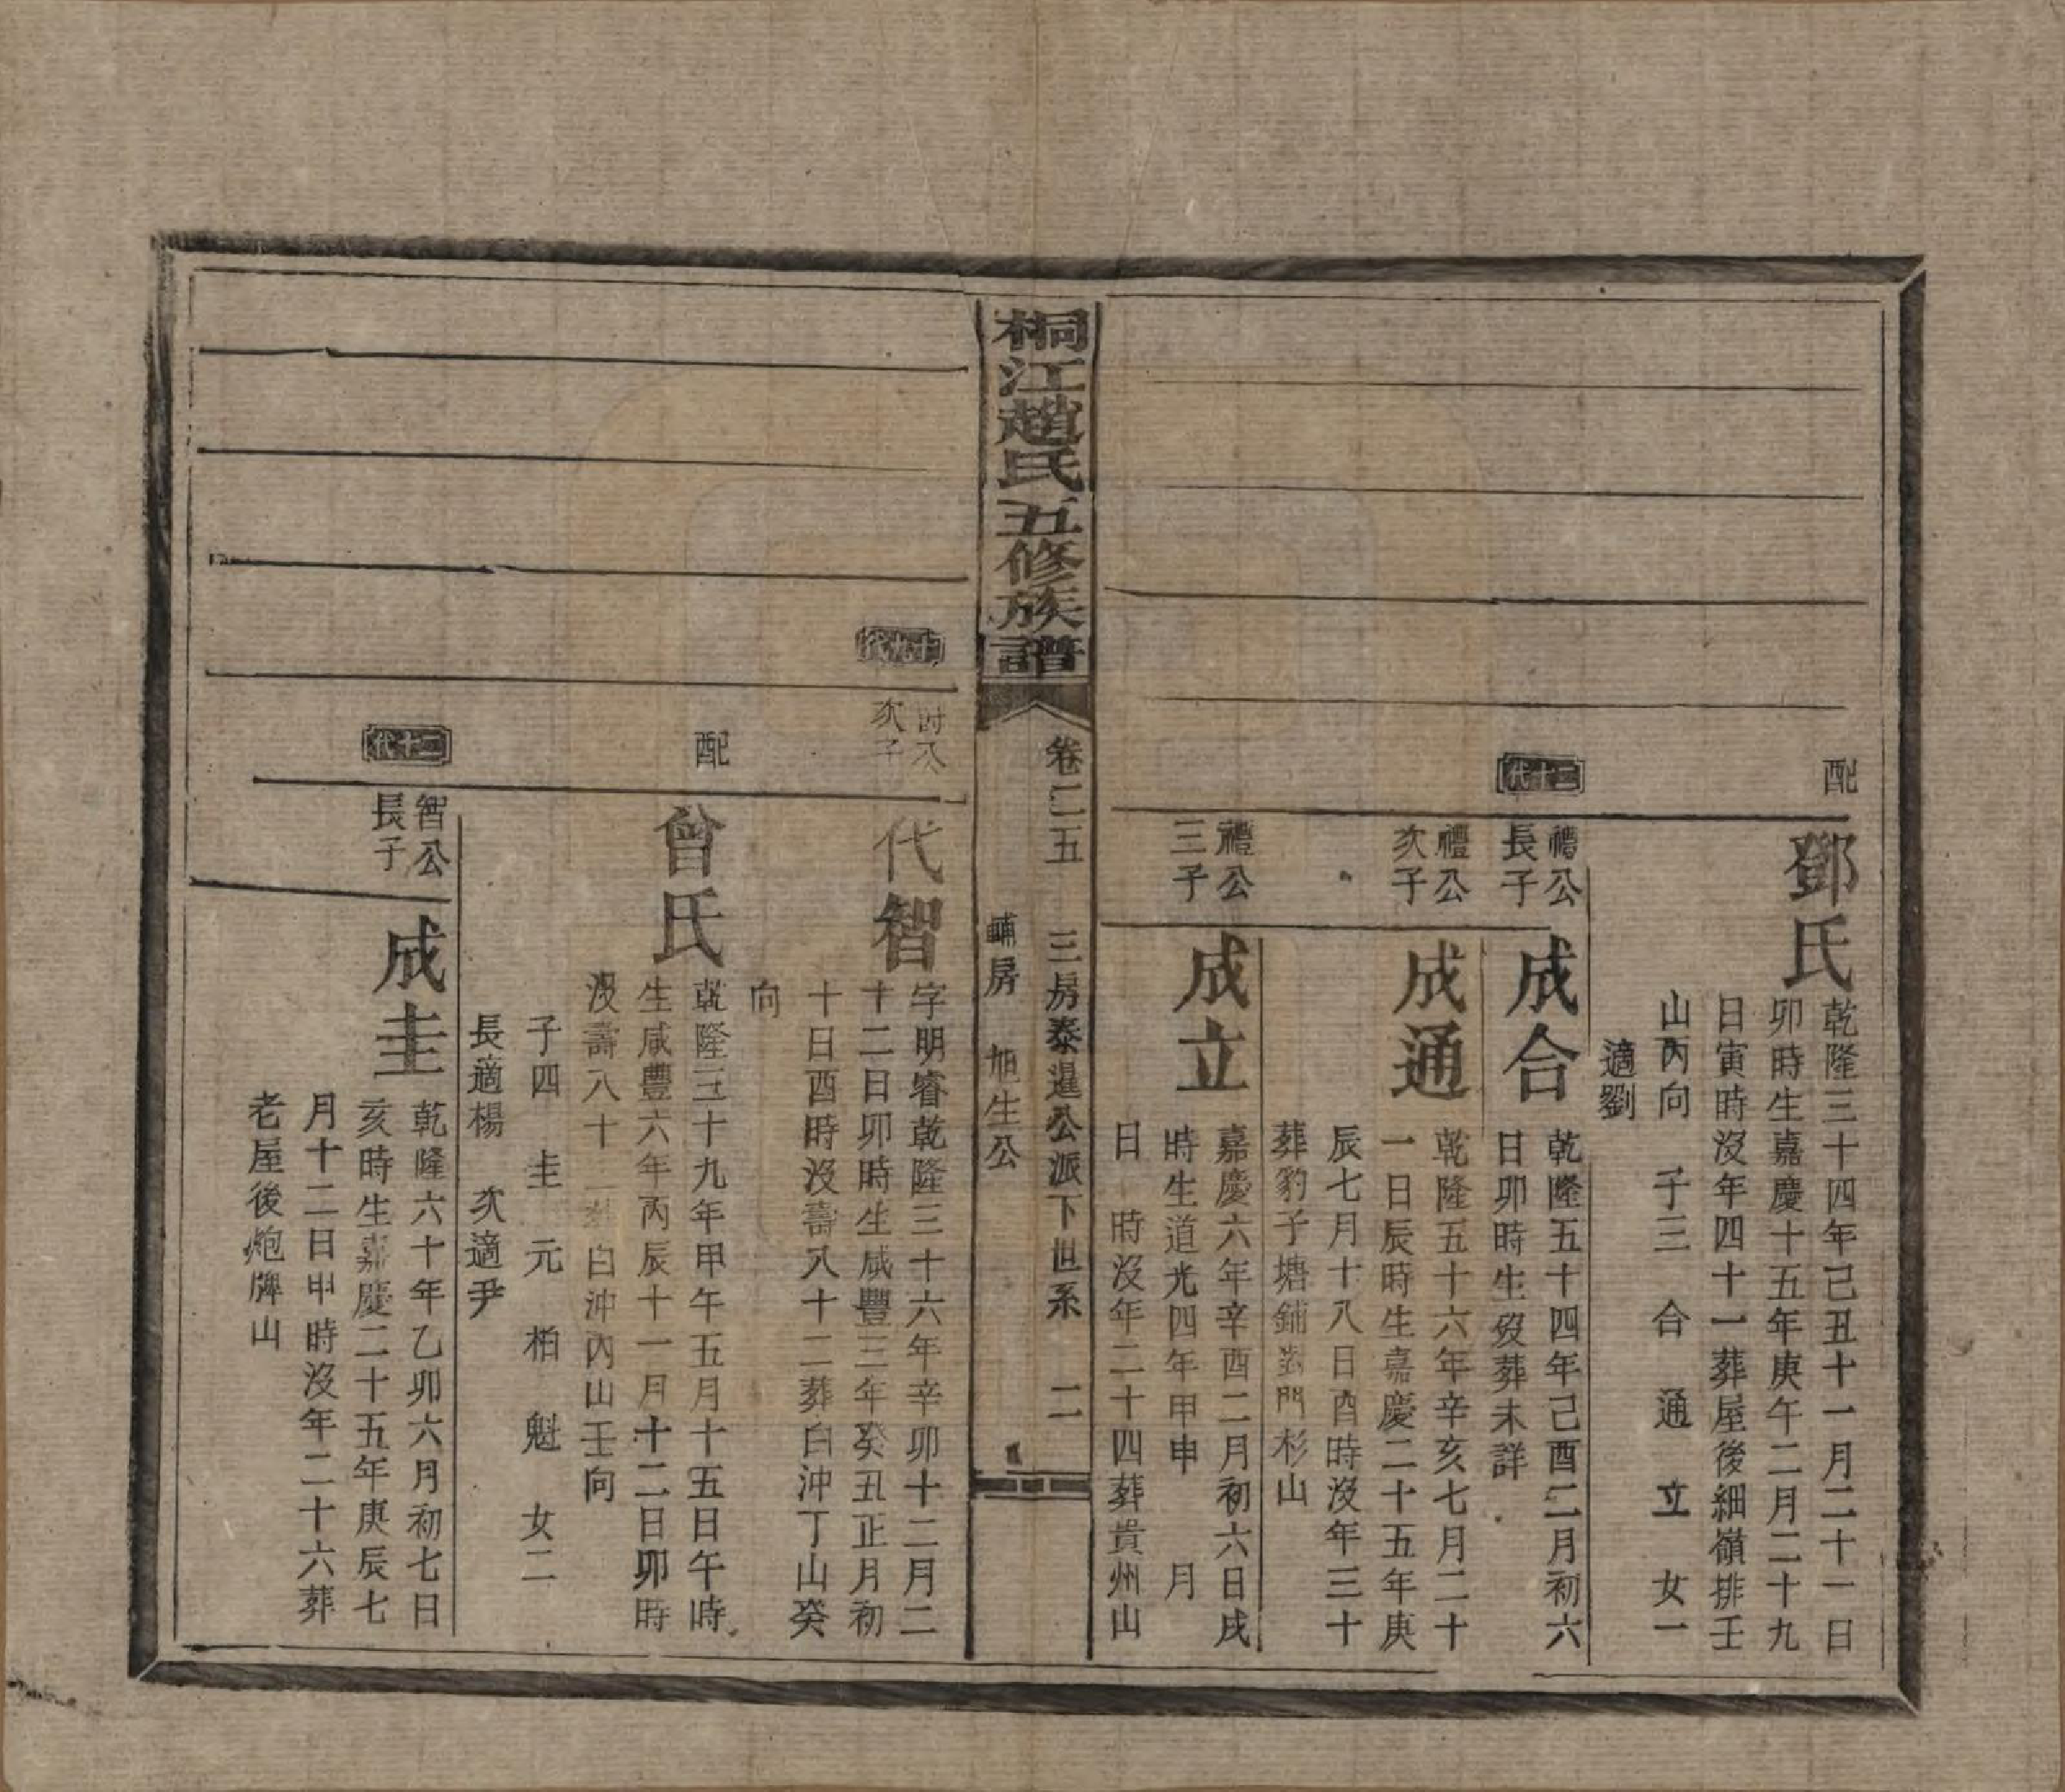 配
鄧氏
乾隆三十四年己丑十一月二十一日
卯時生嘉慶十五年庚午二月二十九
日寅時沒年四十一葬屋後細嶺排壬
山丙向 子三 合 通 立 女一
適劉
二十代
禮公
長子
成合
乾隆五十四年己酉二月初六
日卯時生歿葬未詳
禮公
次子
成通
乾隆五十六年辛亥七月二十
一日辰時生嘉慶二十五年庚
辰七月十八日酉時沒年三十
葬豹子塘鋪對門杉山
禮公
三子
成立
嘉慶六年辛酉二月初六日戌
時生道光四年甲申 月
日 時沒年二十四葬貴州山
桐江趙氏五修族譜
卷二五 三房泰暹公派下世系 二
輔房 旭生公
十九代
次子
代智
字明睿乾隆三十六年辛卯十二月二
十二日卯時生咸豐三年癸丑正月初
十日酉時沒壽八十二葬白沖丁山癸
向
配
曾氏
乾隆三十九年甲午五月十五日午時
生咸豐六年丙辰十一月十二日卯時
沒壽八十二葬白沖內山壬向
子四 圭 元 柏 魁 女二
長適楊 次適尹
二十代
智公
長子
成圭
乾隆六十年乙卯六月初七日
亥時生嘉慶二十五年庚辰七
月十二日申時沒年二十六葬
老屋後炮牌山